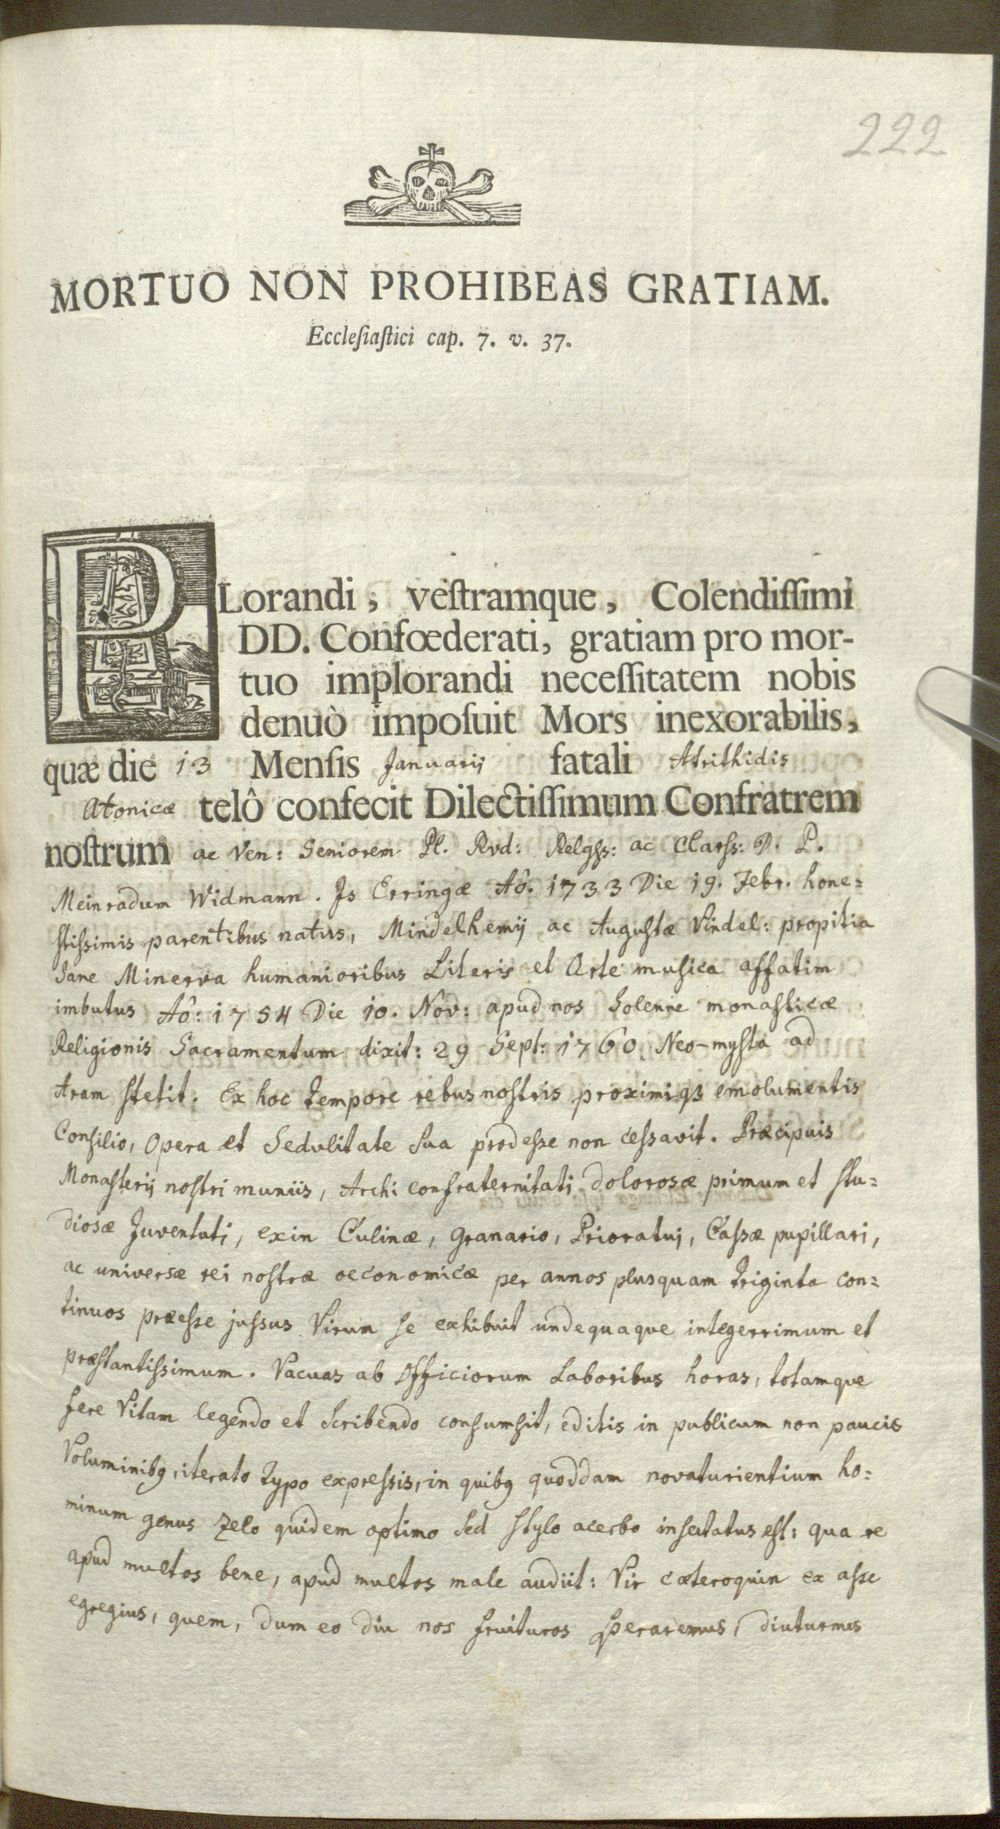 222
MORTUO NON PROHIBEAS GRATIAM.
Eccleſiaſtici cap. 7. v. 37.
PLorandi, veſtramque, Colendiſſimi
DD. Confœderati, gratiam pro mor-
tuo implorandi neceſſitatem nobis
denuò impoſuit Mors inexorabilis,
quæ die 13 Menſis Januarij fatali Atrithidis
Atonicæ telô confecit Dilectiſſimum Confratrem
noſtrum ac Ven: Seniorem Pl. Rvd: Relgss: ac Clarss: D. P.
Meinradum Widmann. Is Erringæ Aô. 1733 Die 19. Febr. hone=
stissimis parentibus natus, Mindelhemij ac Augustæ Vindel: propitia
sane Minerva humanioribus Literis et Arte musica affatim
imbutus Aô: 1754 Die 10. Nov: apud nos Solenne monasticæ
Religionis Sacramentum dixit: 29 Sept: 1760 Neo-mysta ad
Aram stetit. Ex hoc tempore rebus nostris proximiqz emolumentis
Consilio, Opera et Sedulitate sua prodesse non cessavit. Præcipuis
Monasterij nostri muniis, Archi confraternitati dolorosæ primum et stu=
diosæ Juventuti, exin Culinæ, Granario, Prioratui, Cassæ pupillari,
ac universæ rei nostræ oeconomicæ per annos plusquam triginta con=
tinuos præesse jussus Virum se exhibuit undequaque integerrimum et
præstantissimum. Vacuas ab Officiorum Laboribus horas, totamque
fere Vitam legendo et scribendo consumsit, editis in publicum non paucis
Voluminibq, iterato typo expressis, in quibq quoddam novaturientium ho=
minum genus zelo quidem optimo sed stylo acerbo insectatus est: qua re
apud multos bene, apud multos male audiit: Vir cæteroquin ex asse
egregius, quem, dum eo diu nos fruituros speraremus, diuturnus